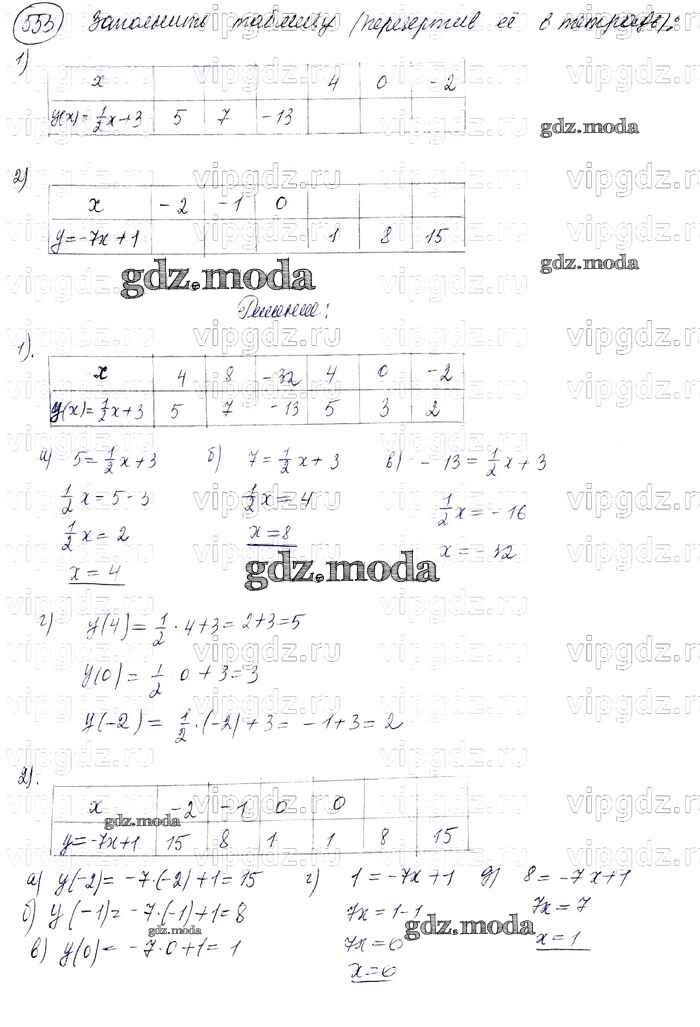 553 Заполните таблицу (перечертив её в тетрадь):
1)
x 4 0 -2
y(x)=1/2x+3 5 7 -13
gdz.moda
2)
x -2 -1 0
y=-7x+1 1 8 15
gdz.moda
gdz.moda
Решение:
1).
x 4 8 -32 4 0 -2
y(x)=1/2x+3 5 7 -13 5 3 2
а) 5=1/2x+3 б) 7=1/2x+3 в) -13=1/2x+3
1/2x=5-3 1/2x=4 1/2x=-16
1/2x=2 x=8 x=-32
x=4
gdz.moda
г) y(4)=1/2·4+3=2+3=5
y(0)=1/2 0+3=3
y(-2)=1/2·(-2)+3=-1+3=2
2).
x -2 -1 0 0
gdz.moda
y=-7x+1 15 8 1 1 8 15
а) y(-2)=-7·(-2)+1=15 г) 1=-7x+1 д) 8=-7x+1
б) y(-1)=-7·(-1)+1=8 7x=1-1 7x=7
gdz.moda
gdz.moda
в) y(0)=-7·0+1=1 7x=0 x=1
x=0
vipgdz.ru